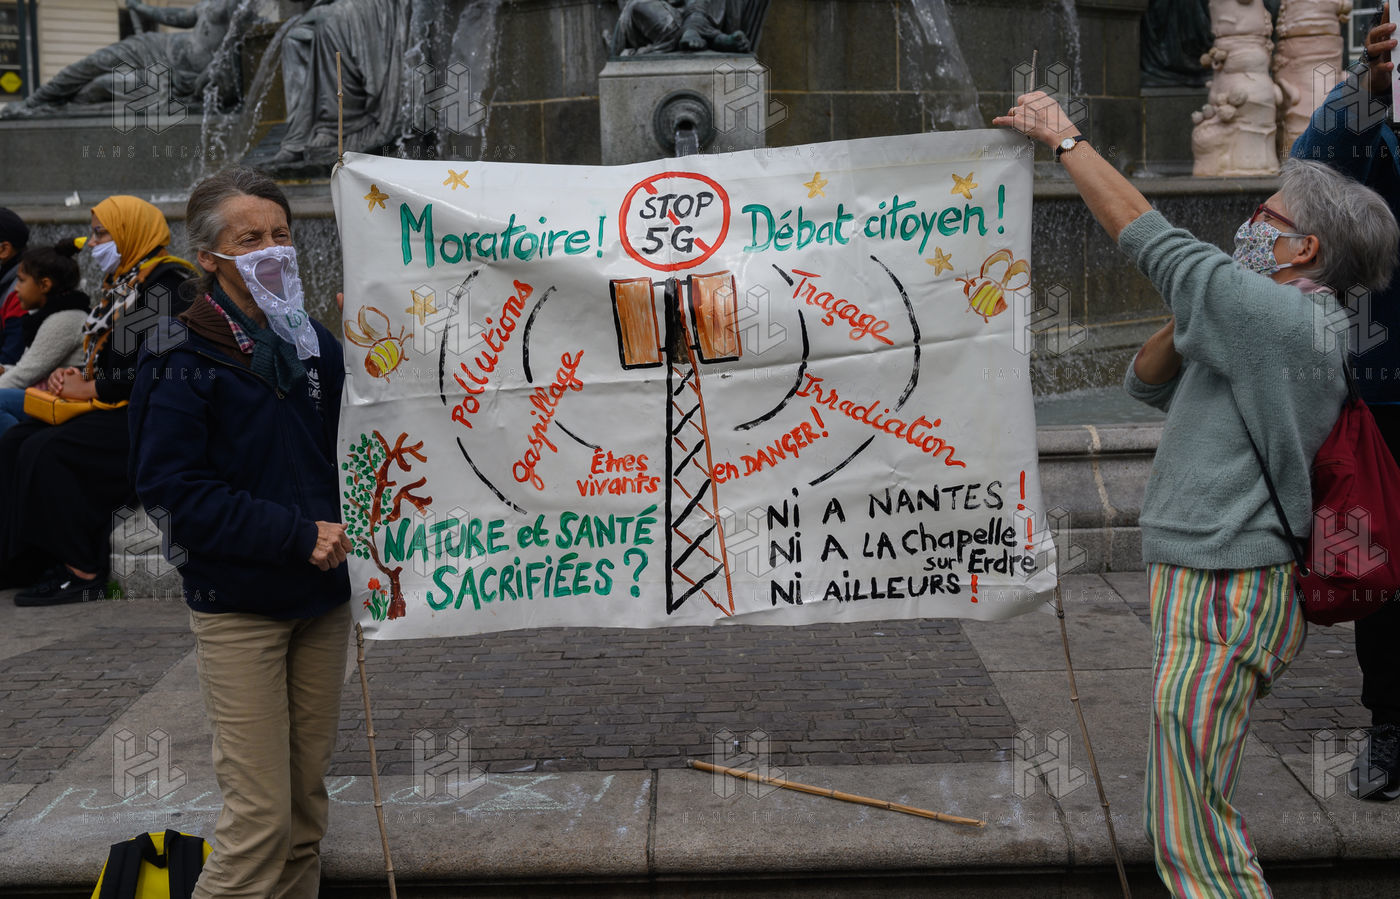 Moratoire! STOP 5G Débat citoyen!
Pollutions
gaspillage
Traçage
Irradiation
Êtres vivants en DANGER!
NATURE et SANTÉ
SACRIFIÉES ?
Ni A NANTES !
Ni A LA Chapelle !
sur Erdre
Ni AiLLEURS !
HANS LUCAS